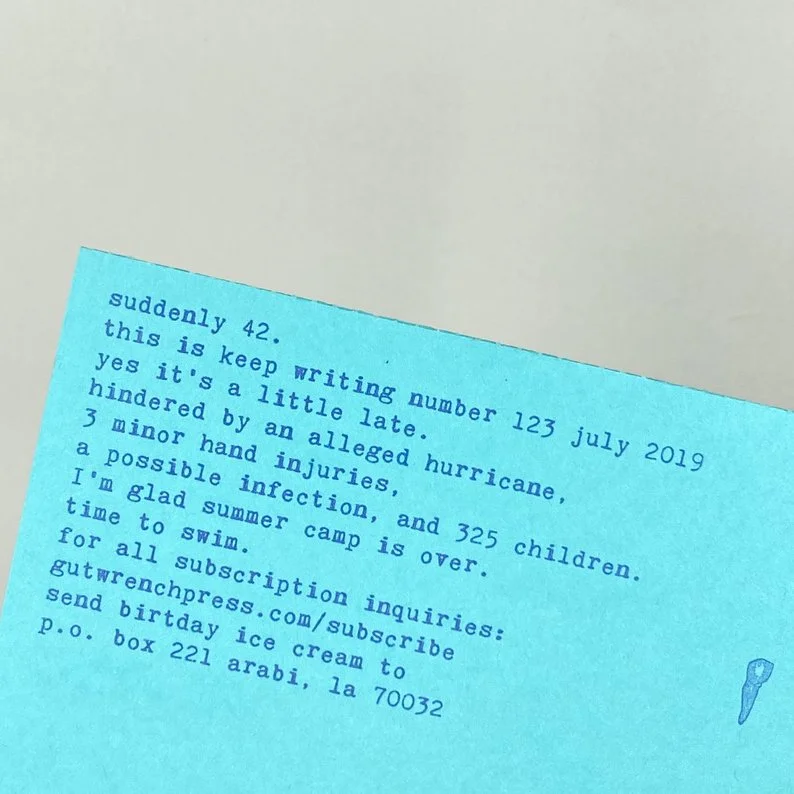 suddenly 42.
this is keep writing number 123 july 2019
yes it's a little late.
hindered by an alleged hurricane,
3 minor hand injuries,
a possible infection, and 325 children.
I'm glad summer camp is over.
time to swim.
for all subscription inquiries:
gutwrenchpress.com/subscribe
send birtday ice cream to
p.o. box 221 arabi, la 70032